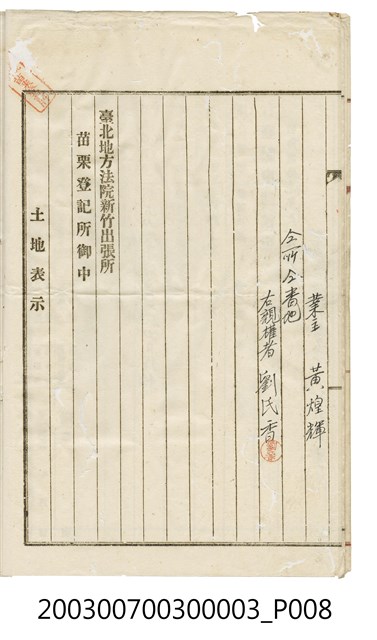 業主 黃煌輝
仝所仝番地
右親權者 劉氏香
臺北地方法院新竹出張所
苗栗登記所御中
土地表示
200300700300003_P008